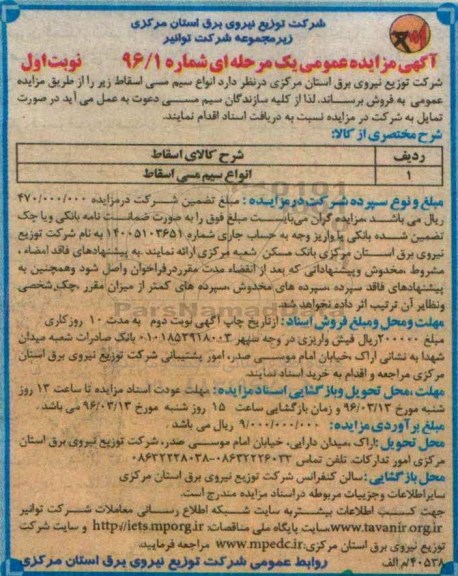 شرکت توزیع نیروی برق استان مرکزی
زیرمجموعه شرکت توانیر
آگهی مزایده عمومی یک مرحله ای شماره ۹۶/۱ نوبت اول
شرکت توزیع نیروی برق استان مرکزی درنظر دارد انواع سیم مسی اسقاط زیر را از طریق مزایده
عمومی به فروش برساند. لذا از کلیه سازندگان سیم مسی دعوت به عمل می آید در صورت
تمایل به شرکت در مزایده نسبت به دریافت اسناد اقدام نمایند.
شرح مختصری از کالا:
ردیف شرح کالای اسقاط
۱ انواع سیم مسی اسقاط
مبلغ و نوع سپرده شرکت در مزایده : مبلغ تضمین شرکت درمزایده ۴۷۰/۰۰۰/۰۰۰
ریال می باشد .مزایده گران می‌بایست مبلغ فوق را به صورت ضمانت نامه بانکی ویا چک
تضمین شده بانکی یا واریز وجه به حساب جاری شماره ۱۴۰۰۵۱۰۳۶۵۱ به نام شرکت توزیع
نیروی برق استان مرکزی بانک مسکن شعبه مرکزی ارائه نمایند .به پیشنهادهای فاقد امضاء ،
مشروط ،مخدوش وپیشنهاداتی که بعد از انقضاء مدت مقرردرفراخوان واصل شود وهمچنین به
پیشنهادهای فاقد سپرده ،سپرده های مخدوش ،سپرده های کمتر از میزان مقرر ،چک شخصی
ونظایر آن ترتیب اثر داده نخواهد شد.
مهلت ومحل ومبلغ فروش اسناد : ازتاریخ چاپ آگهی نوبت دوم به مدت ۱۰ روزکاری
مبلغ ۲۰۰۰۰۰ریال فیش واریزی در وجه سپهر ۰۱۰۱۸۵۲۹۱۸۰۰۳ بانک صادرات شعبه میدان
شهدا به نشانی اراک ،خیابان امام موسی صدر، امور پشتیبانی شرکت توزیع نیروی برق استان
مرکزی مراجعه و اقدام به خرید اسناد نمایند.
مهلت ،محل تحویل وبازگشایی اسناد مزایده : مهلت عودت اسناد مزایده تا ساعت ۱۳ روز
شنبه مورخ ۹۶/۰۳/۱۳ و زمان بازگشایی ساعت ۱۵ روز شنبه مورخ ۹۶/۰۳/۱۳ می باشد .
مبلغ برآوردی مزایده: ۹/۰۰۰/۰۰۰/۰۰۰ ریال می باشد .
محل تحویل :اراک ،میدان دارایی، خیابان امام موسی صدر، شرکت توزیع نیروی برق استان
مرکزی امور تدارکات. تلفن تماس ۰۸۶۳۲۲۲۶۰۳۳-۰۸۶۳۲۲۲۸۰۳۸
محل بازگشایی : سالن کنفرانس شرکت توزیع نیروی برق استان مرکزی
سایراطلاعات وجزییات مربوطه دراسناد مزایده مندرج است.
جهت کسب اطلاعات بیشتربه سایت شبکه اطلاع رسانی معاملات شرکت توانیر
www.tavanir.org.irسایت پایگاه ملی مناقصات: http://iets.mporg.ir و سایت شرکت
توزیع نیروی برق استان مرکزی:www.mpedc.ir مراجعه فرمایید.
۴۰۵۳۸/م الف روابط عمومی شرکت توزیع نیروی برق استان مرکزی
ParsNamadData